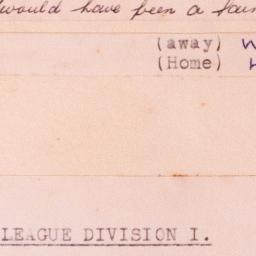 would have been a
(away) W
(Home) H
LEAGUE DIVISION I.